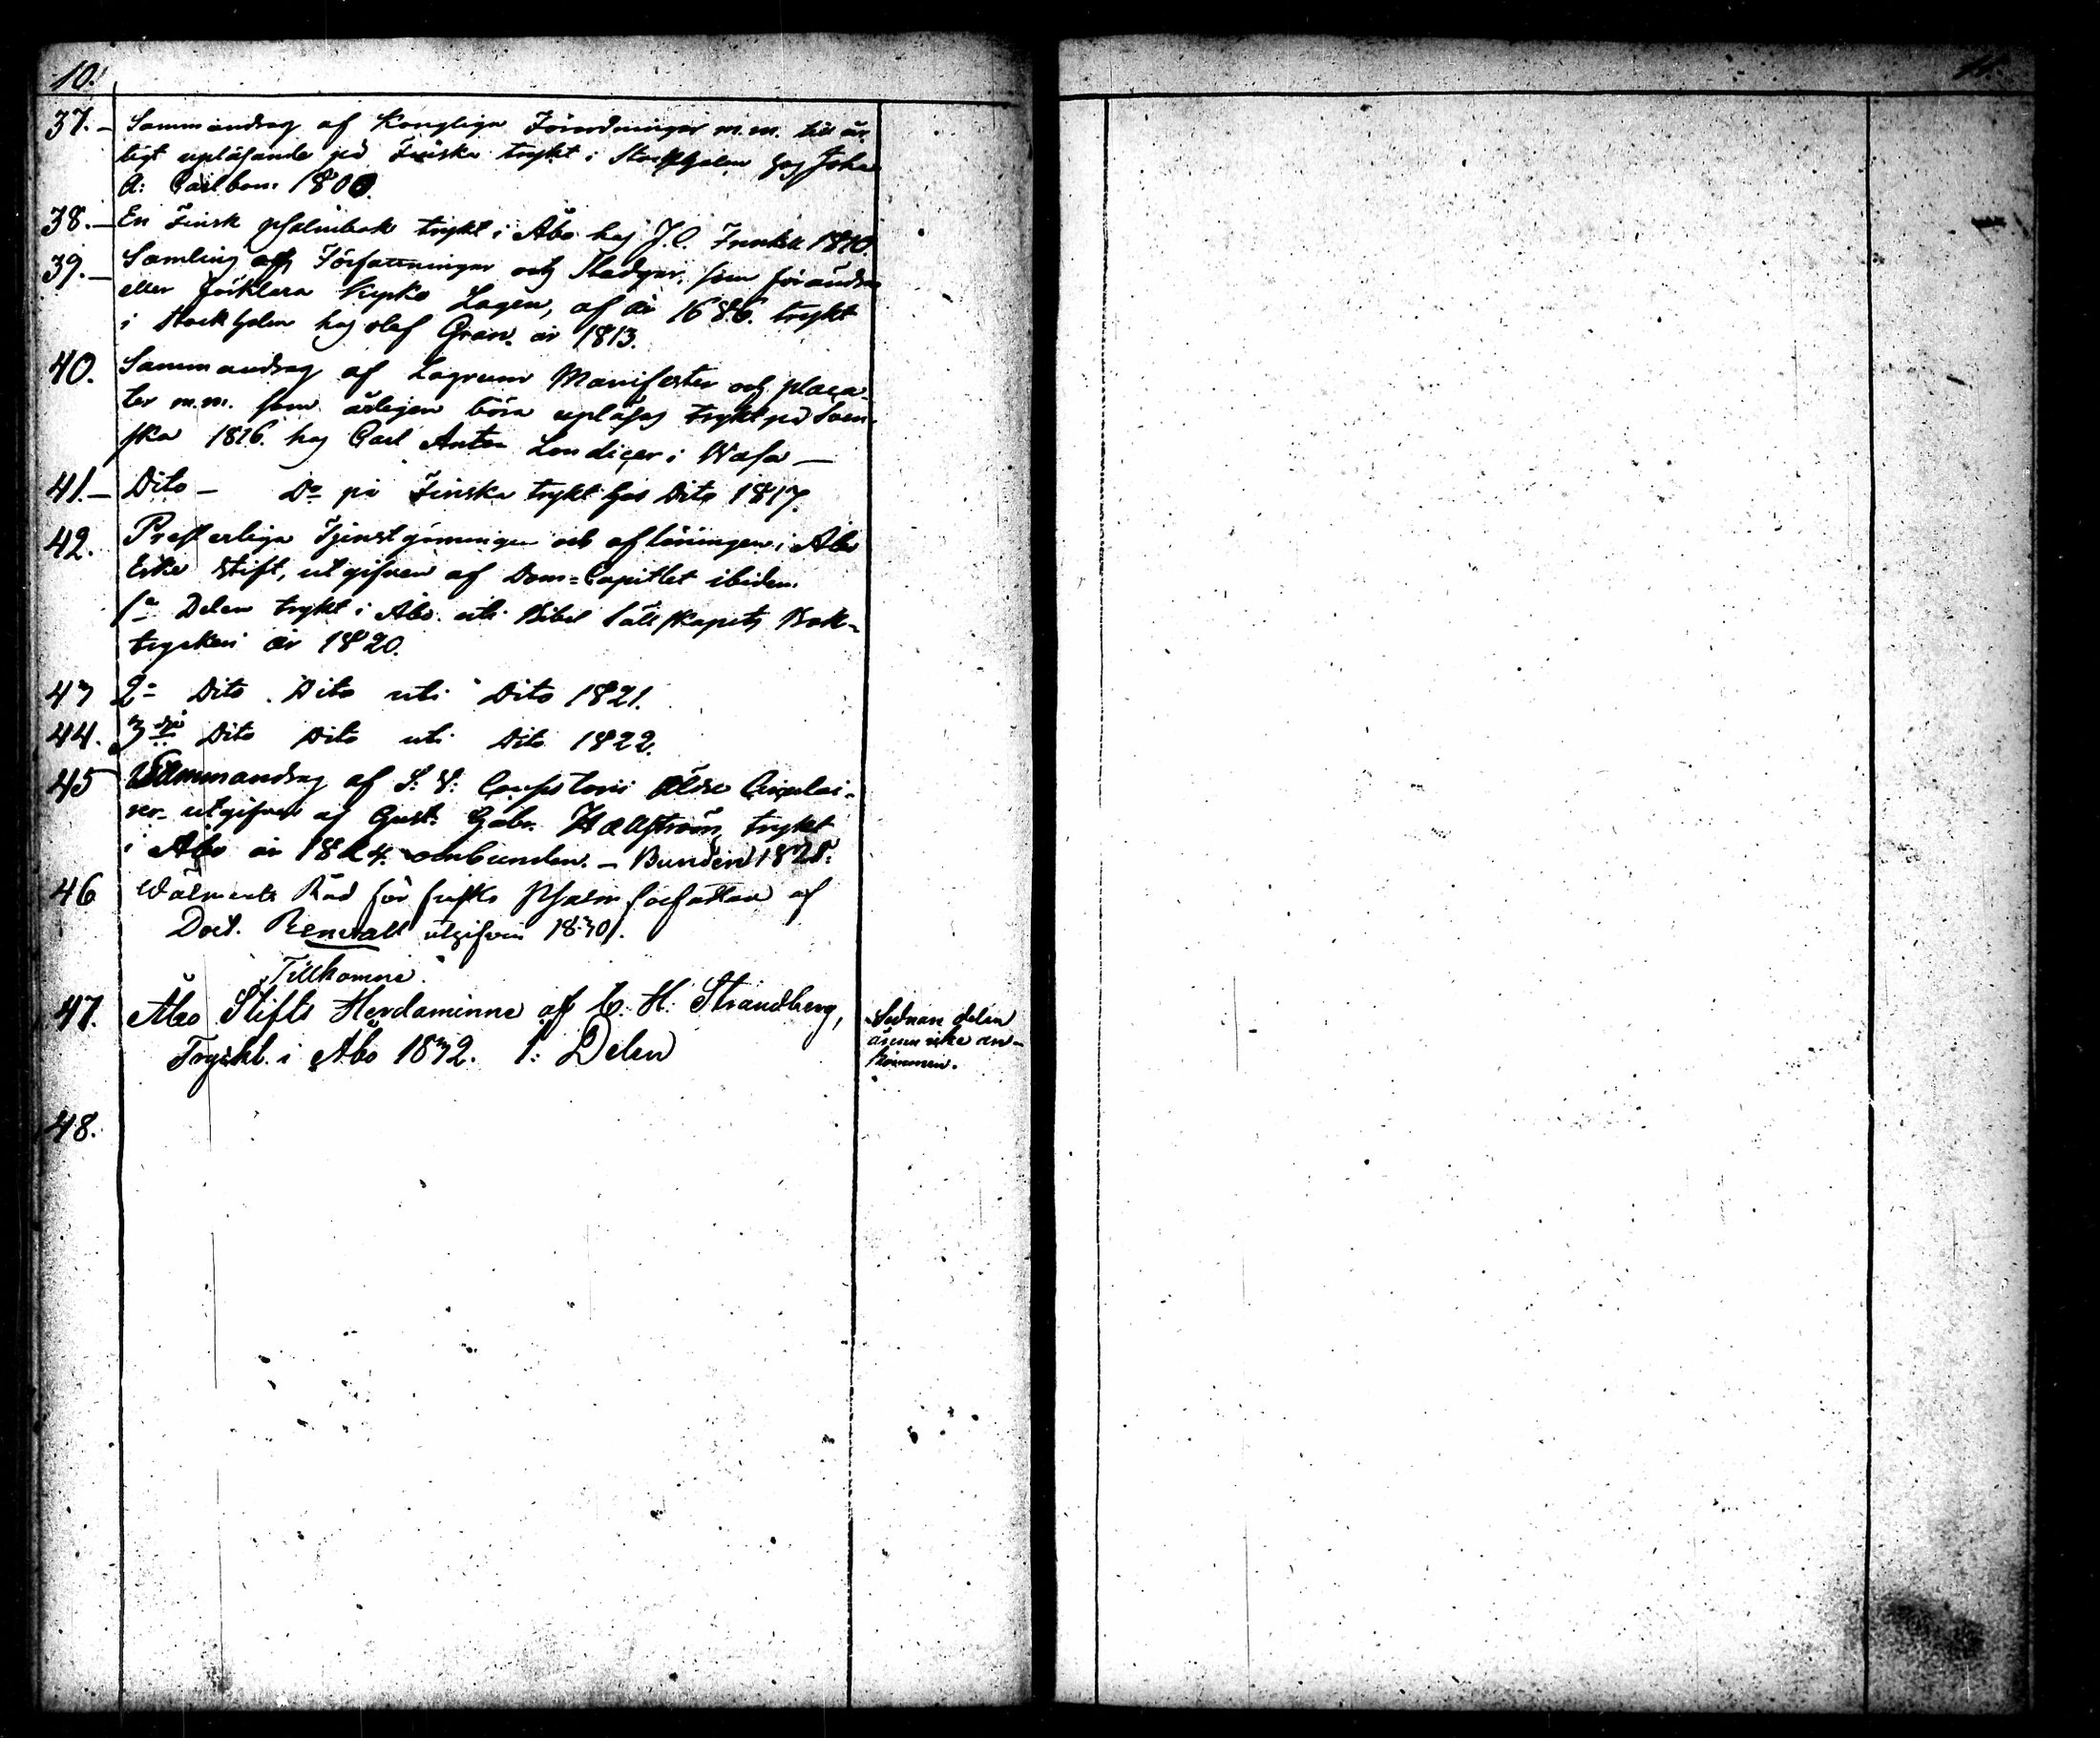 10.
37. Sammandrag af Kongliga Förordningar m.m. till år-
ligt upläsande på Finska trykt i Stockholm hos Joha
A: Carlbom 1800.
38. En Finsk psalmbok trykt i Åbo hos J.C. Frenkell 1810.
39. Samling af Författningar och Stadgar, som förändra
eller förklara Kyrko Lagen, af år 1686. trykt
i Stockholm hos Olof Gran. år 1813.
40. Sammandrag af Lagrum Manifester och placa-
ter m.m. som årligen böra upläsas trykt på Sven-
ska 1816. hos Carl Anton Londicer i Wasa
41. Dito Do på Finska trykt hos Dito 1817.
42. Presterliga Tjenstgöringen och aflöningen i Åbo
Erke Stift, utgifven af Dom-Capitlet ibidem.
1a Delen trykt i Åbo uti Bibel Sällskapets Bok-
tryckeri år 1820.
43 2a Dito Dito uti Dito 1821.
44. 3dje Dito Dito uti Dito 1822.
45 Sammandrag af S. V. Consistorii äldre Circulai-
rer utgifvet af Gust. Gabr. Hællström, trykt
i Åbo år 1824. obunden. Bunden 1828.
46 Wälmente Råd för finska Psalm författare af
Doct. Renvall utgifven 1830.
Tillkomne
47. Åbo Stifts Herdaminne af C. H. Strandberg,
Tryckt. i Åbo 1832. 1: Delen
Sednare delen
ännu icke an-
kommen.
48.
11.